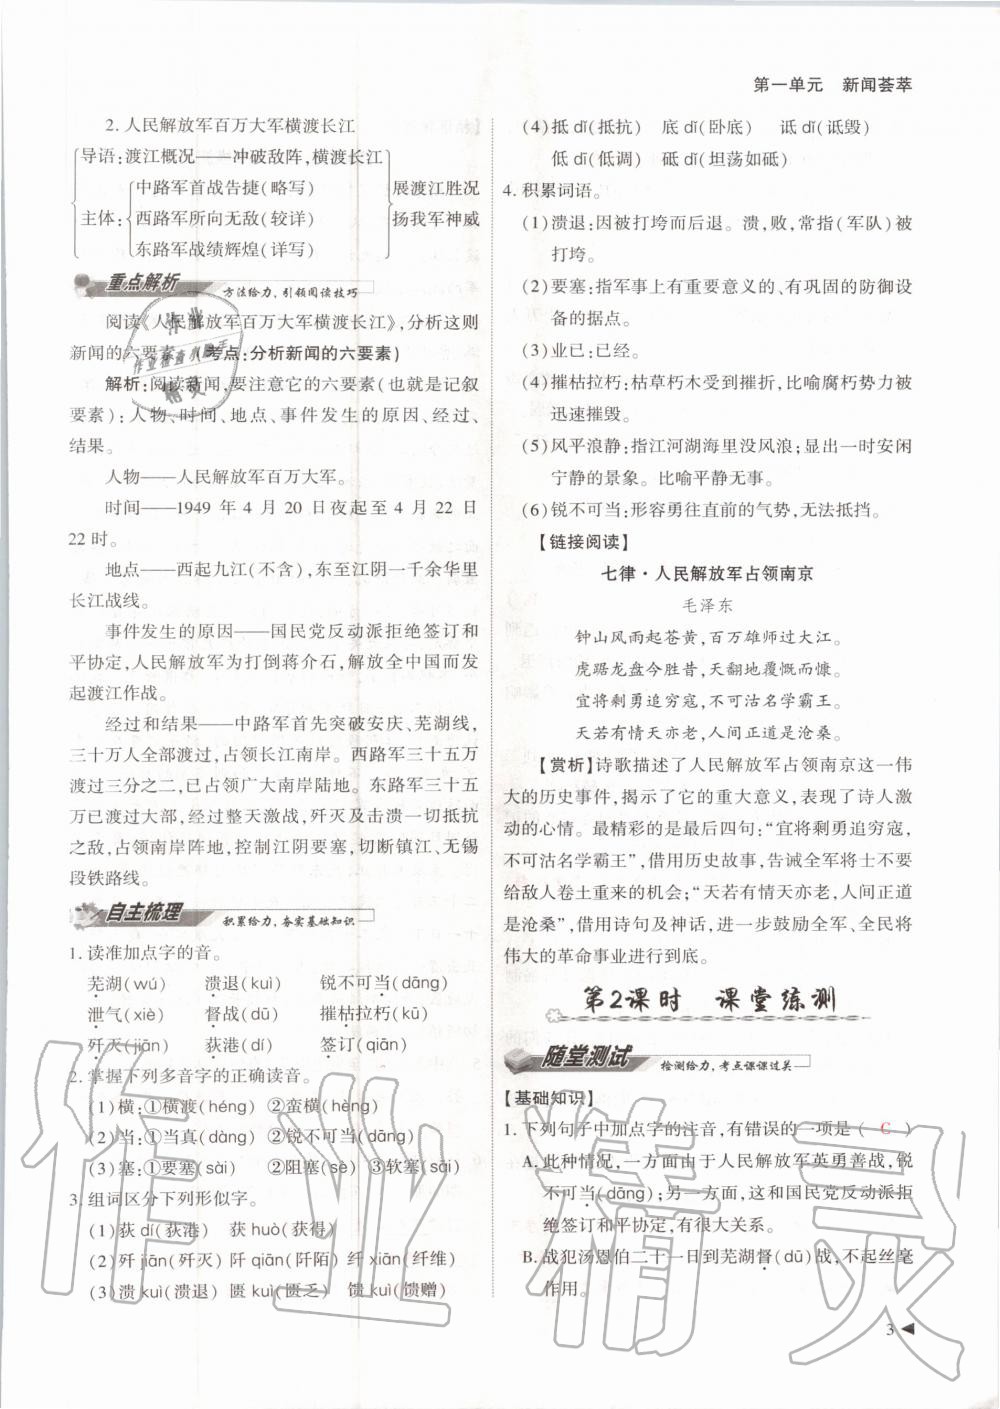 第一单元 新闻荟萃
2. 人民解放军百万大军横渡长江
导语:渡江概况——冲破敌阵,横渡长江
主体:
中路军首战告捷(略写)
西路军所向无敌(较详)
东路军战绩辉煌(详写)
展渡江胜况
扬我军神威
重点解析 方法给力,引领阅读技巧
阅读《人民解放军百万大军横渡长江》,分析这则
新闻的六要素。(考点:分析新闻的六要素)
解析:阅读新闻,要注意它的六要素(也就是记叙
要素):人物、时间、地点、事件发生的原因、经过、
结果。
人物——人民解放军百万大军。
时间——1949 年 4 月 20 日夜起至 4 月 22 日
22 时。
地点——西起九江(不含),东至江阴一千余华里
长江战线。
事件发生的原因——国民党反动派拒绝签订和
平协定,人民解放军为打倒蒋介石,解放全中国而发
起渡江作战。
经过和结果——中路军首先突破安庆、芜湖线,
三十万人全部渡过,占领长江南岸。西路军三十五万
渡过三分之二,已占领广大南岸陆地。东路军三十五
万已渡过大部,经过整天激战,歼灭及击溃一切抵抗
之敌,占领南岸阵地,控制江阴要塞,切断镇江、无锡
段铁路线。
自主梳理 积累给力,夯实基础知识
1. 读准加点字的音。
芜湖(wú) 溃退(kuì) 锐不可当(dāng)
泄气(xiè) 督战(dū) 摧枯拉朽(kū)
歼灭(jiān) 荻港(dí) 签订(qiān)
2. 掌握下列多音字的正确读音。
(1)横:①横渡(héng) ②蛮横(hèng)
(2)当:①当真(dàng) ②锐不可当(dāng)
(3)塞:①要塞(sài) ②阻塞(sè) ③软塞(sāi)
3. 组词区分下列形似字。
(1)荻 dí(荻港) 获 huò(获得)
(2)歼 jiān(歼灭) 阡 qiān(阡陌) 纤 xiān(纤维)
(3)溃 kuì(溃退) 匮 kuì(匮乏) 馈 kuì(馈赠)
(4)抵 dǐ(抵抗) 底 dǐ(卧底) 诋 dǐ(诋毁)
低 dī(低调) 砥 dǐ(坦荡如砥)
4. 积累词语。
(1)溃退:因被打垮而后退。溃,败,常指(军队)被
打垮。
(2)要塞:指军事上有重要意义的、有巩固的防御设
备的据点。
(3)业已:已经。
(4)摧枯拉朽:枯草朽木受到摧折,比喻腐朽势力被
迅速摧毁。
(5)风平浪静:指江河湖海里没风浪;显出一时安闲
宁静的景象。比喻平静无事。
(6)锐不可当:形容勇往直前的气势,无法抵挡。
【链接阅读】
七律·人民解放军占领南京
毛泽东
钟山风雨起苍黄,百万雄师过大江。
虎踞龙盘今胜昔,天翻地覆慨而慷。
宜将剩勇追穷寇,不可沽名学霸王。
天若有情天亦老,人间正道是沧桑。
【赏析】诗歌描述了人民解放军占领南京这一伟
大的历史事件,揭示了它的重大意义,表现了诗人激
动的心情。最精彩的是最后四句:“宜将剩勇追穷寇,
不可沽名学霸王”,借用历史故事,告诫全军将士不要
给敌人卷土重来的机会;“天若有情天亦老,人间正道
是沧桑”,借用诗句及神话,进一步鼓励全军、全民将
伟大的革命事业进行到底。
第2课时 课堂练测
随堂测试 检测给力,考点课课过关
【基础知识】
1. 下列句子中加点字的注音,有错误的一项是( C )
A. 此种情况,一方面由于人民解放军英勇善战,锐
不可当(dāng);另一方面,这和国民党反动派拒
绝签订和平协定,有很大关系。
B. 战犯汤恩伯二十一日到芜湖督(dū)战,不起丝毫
作用。
3
作业
作业检查小助手
精灵
作业精灵